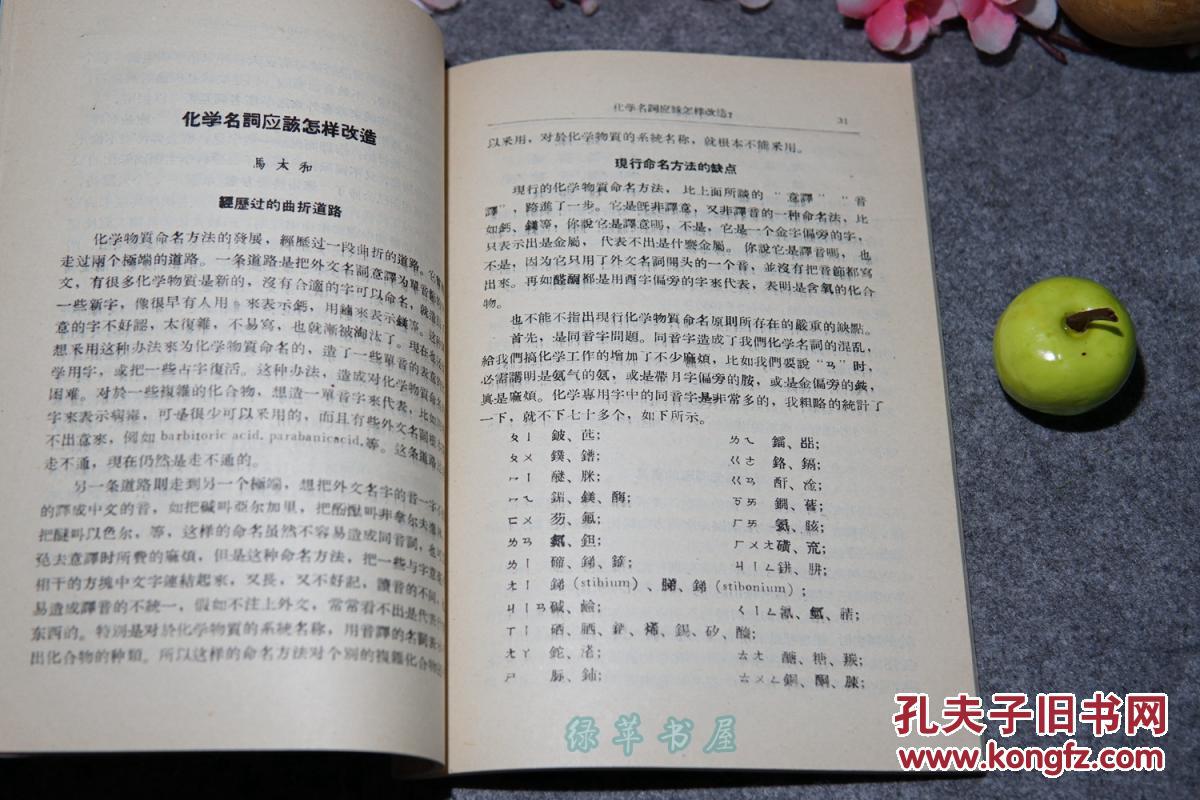 化学名詞应該怎样改造
馬太和
經歷过的曲折道路
化学物質命名方法的發展，經歷过一段曲折的道路。它
走过兩個極端的道路。一条道路是把外文名詞意譯為單音節的
文，有很多化学物質是新的，沒有合適的字可以命名，就造
一些新字，像很早有人用 來表示鈣，用 來表示鎂等。这
意的字不好認，太復雜，不易寫，也就漸被淘汰了。現在
想采用这种办法來为化学物質命名，造了一些單音的表意的
学用字，或把一些古字復活。这种办法，造成对化学物質
困难。对於一些複雜的化合物，想造一單音字來代表，比如
字來表示 ，可是很少可以采用的，而且有些外文名詞
不出意來，例如 barbitoric acid. parabanicacid.等。这条道路
走不通，現在仍然是走不通的。
另一条道路則走到另一個極端，想把外文名字的音一字不
的譯成中文的音，如把碱叫亞尔加里，把酚酞叫非拿尔夫
把醚叫以色尔，等，这样的命名虽然不容易造成同音詞，也
免去意譯时所費的麻煩，但是这种命名方法，把一些与字意
相干的方塊中文字連結起來，又長，又不好記，讀音的不同，
易造成譯音的不統一，假如不注上外文，常常看不出是代表
东西的。特別是对於化学物質的系統名称，用音譯的名詞
出化合物的种類。所以这样的命名方法对個別的複雜化合物
化学名詞应該怎样改造？
31
以采用，对於化学物質的系統名称，就根本不能采用。
現行命名方法的缺点
現行的化学物質命名方法，比上面所談的“意譯”“音
譯”，跨進了一步。它是既非譯意，又非譯音的一种命名法，比
如鈣、鎂等，你說它是譯意嗎，不是，它是一个金字偏旁的字，
只表示出是金屬，代表不出是什麼金屬。你說它是譯音嗎，也
不是，因为它只用了外文名詞開头的一个音，並沒有把音節都寫
出來。再如醛酮都是用酉字偏旁的字來代表，表明是含氧的化合
物。
也不能不指出現行化学物質命名原則所存在的嚴重的缺點。
首先，是同音字問題。同音字造成了我們化学名詞的混乱，
給我們搞化学工作的增加了不少麻煩，比如我們要說“ㄢ”时，
必需講明是氨气的氨，或是帶月字偏旁的胺，或是金偏旁的銨，
眞是麻煩。化学專用字中的同音字是非常多的，我粗略的統計了
一下，就不下七十多个，如下所示。
ㄆㄧ 鈹、芘；
ㄌㄟ 鐳、
ㄆㄨ 鏷、鐠；
ㄍㄜ 鉻、鎘；
ㄇㄧ 醚、脒；
ㄍㄢ 酐、
ㄇㄟ 鎇、鎂、酶；
ㄈㄨ 芴、氟；
ㄏㄞ 氦、胲；
ㄉㄢ 氮、鉭；
ㄏㄨㄤ 磺、巟；
ㄉㄧ 碲、銻、
ㄐㄧㄥ 肼；
ㄊㄧ 銻（stibium）、䏲、銻（stibonium）；
ㄐㄧㄢ 碱、鹼；
ㄑㄧㄥ 氰、氫、腈；
ㄒㄧ 硒、烯、錫、矽、
ㄊㄚ 鉈、
ㄊㄤ 醣、糖、羰；
ㄕ 鈰；
ㄊㄨㄥ 銅、酮、腖；
绿苹书屋
孔夫子旧书网
www.kongfz.com